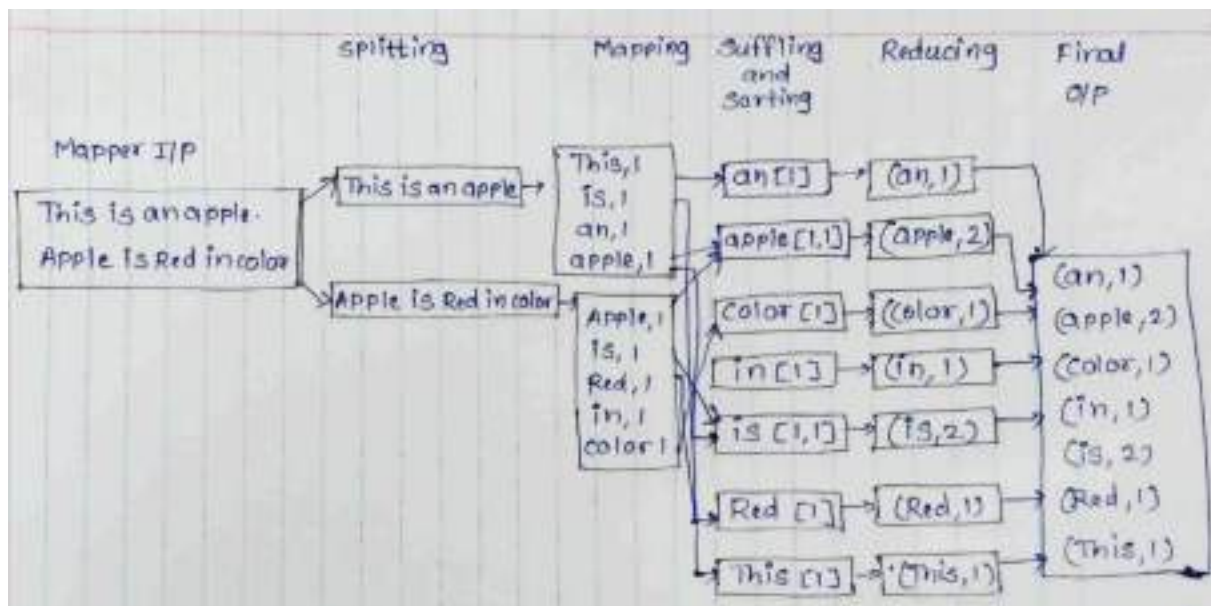 Splitting
Mapping
Suffling
and
Sorting
Reducing
Final
O/P
Mapper I/P
This is an apple.
Apple is Red in color
This is an apple
Apple is Red in color
This, 1
is, 1
an, 1
apple, 1
Apple, 1
is, 1
Red, 1
in, 1
color 1
an [1]
apple [1,1]
color [1]
in [1]
is [1,1]
Red [1]
This [1]
(an, 1)
(apple, 2)
(color, 1)
(in, 1)
(is, 2)
(Red, 1)
(This, 1)
(an, 1)
(apple, 2)
(color, 1)
(in, 1)
(is, 2)
(Red, 1)
(This, 1)